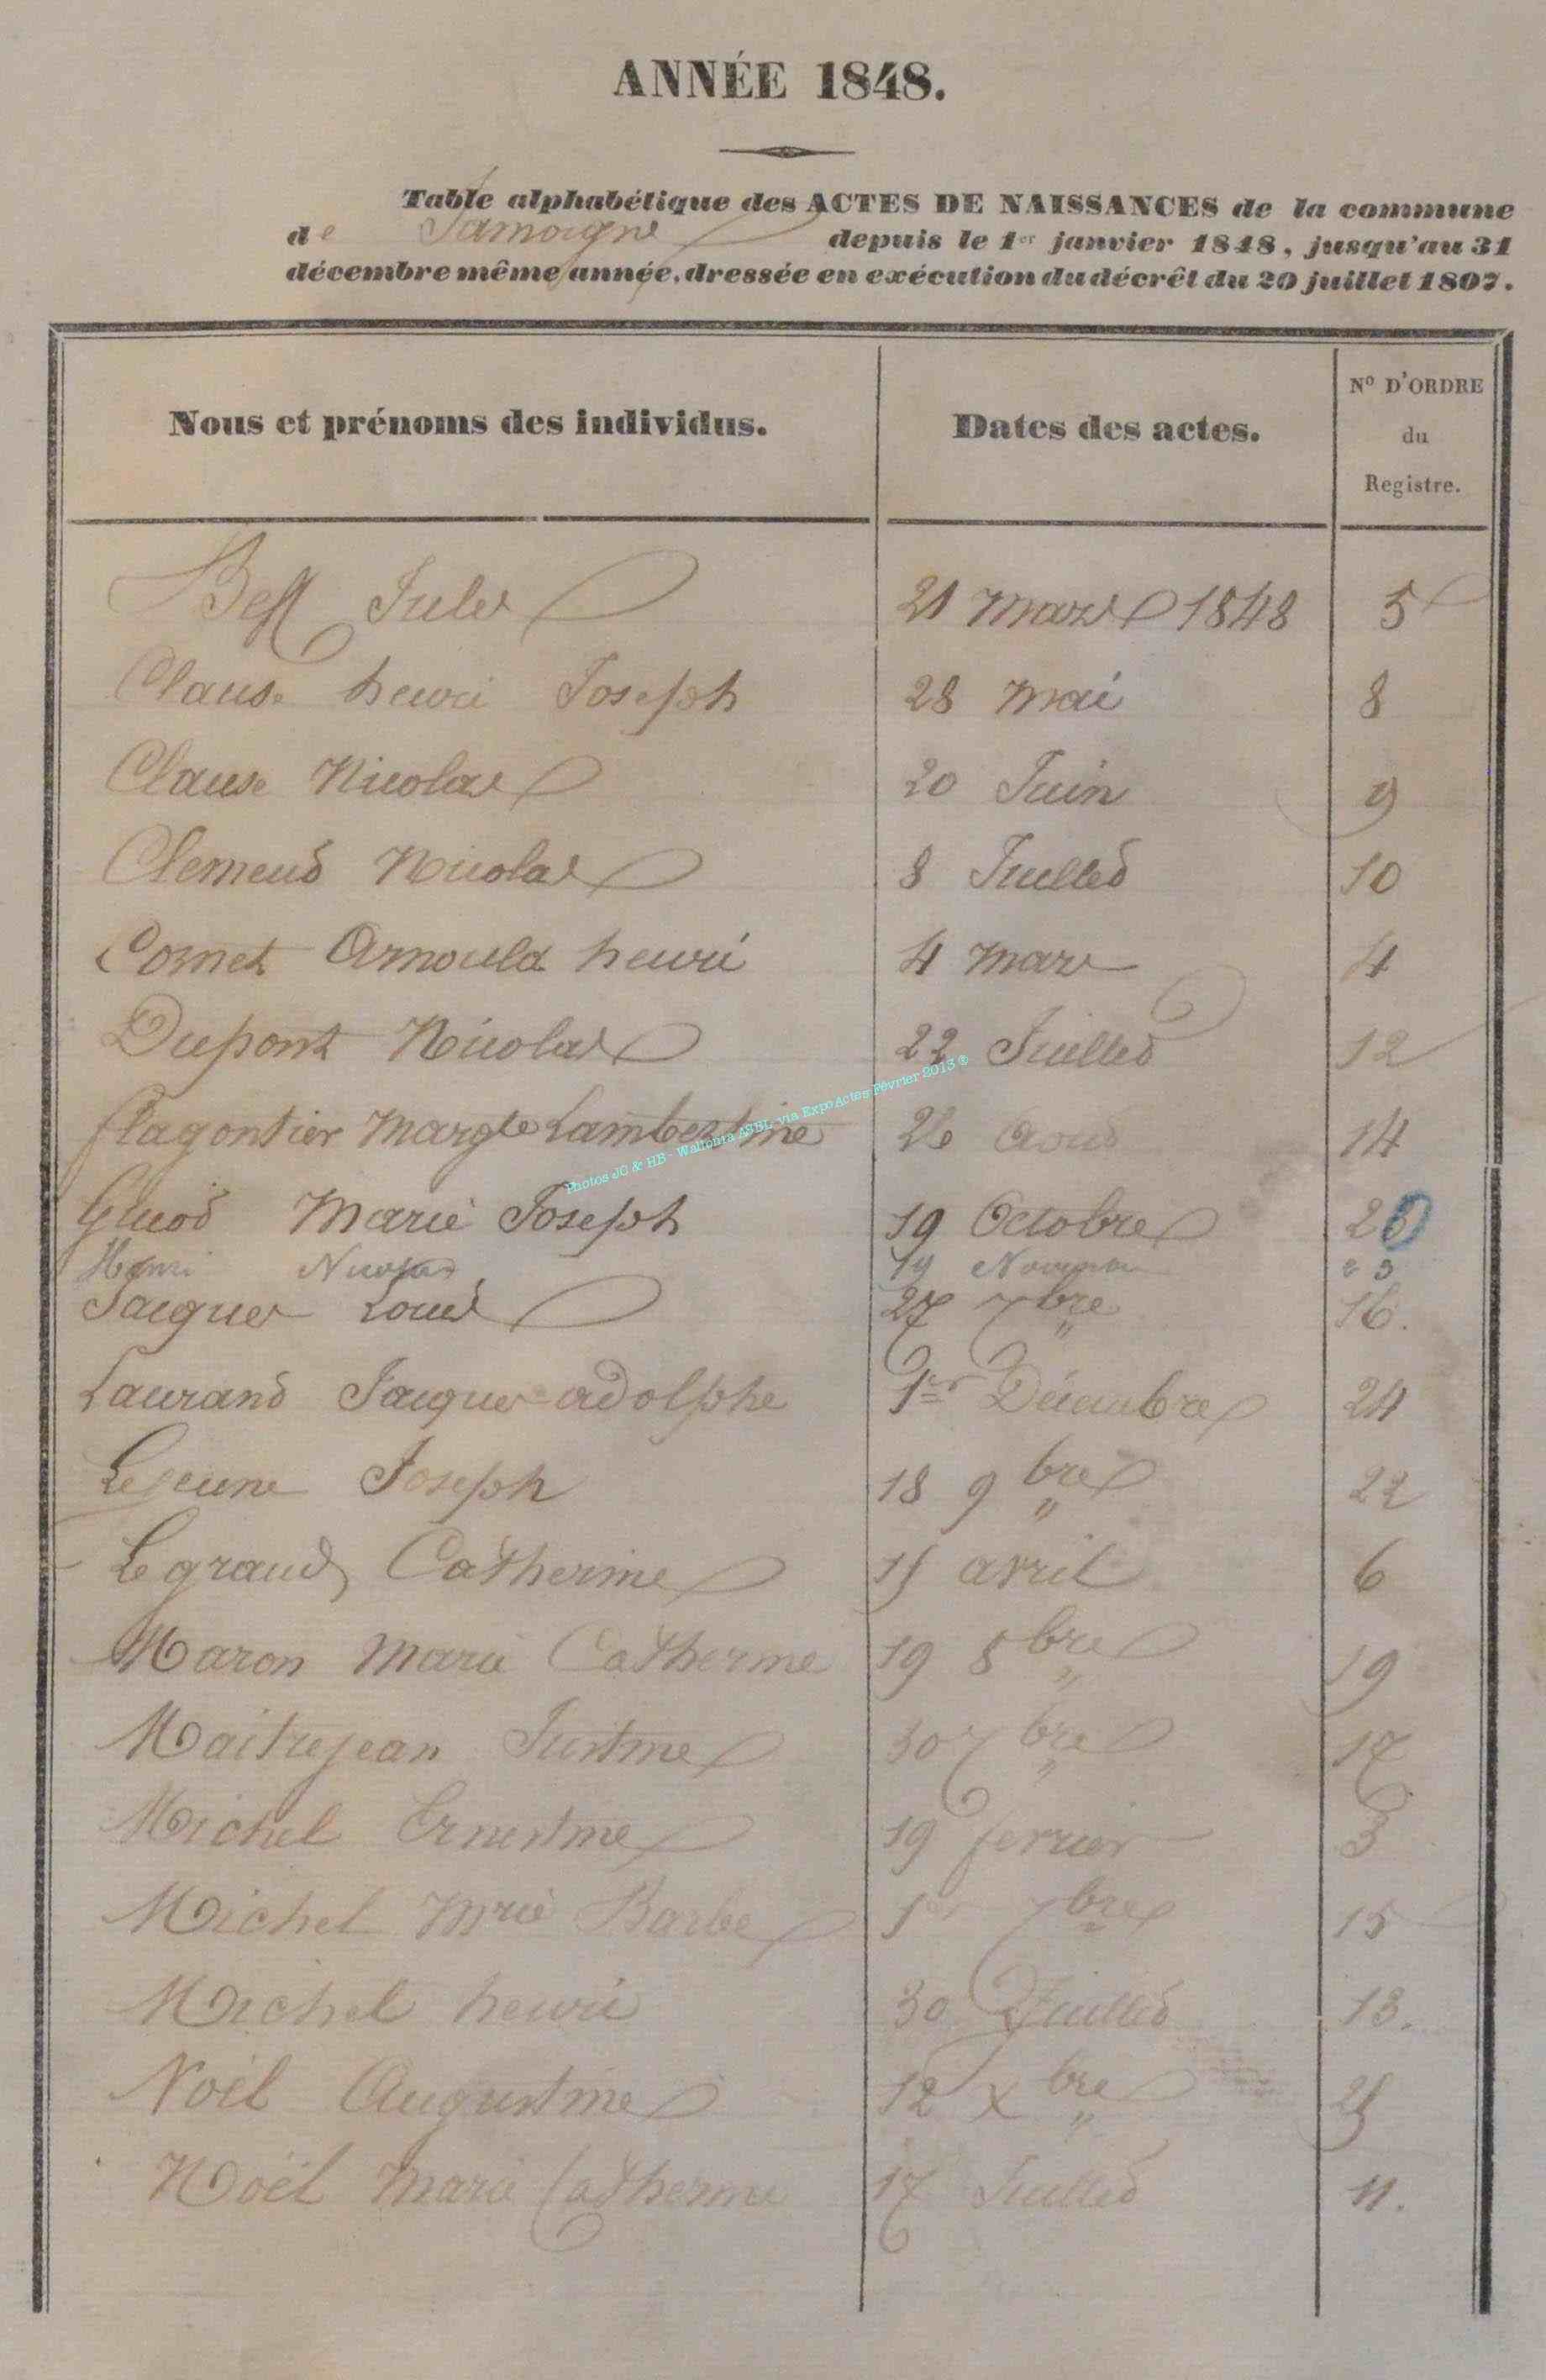 ANNÉE 1848.
Table alphabétique des ACTES DE NAISSANCES de la commune
de Jamoigne depuis le 1er janvier 1848, jusqu'au 31
décembre même année, dressée en exécution du décrêt du 20 juillet 1807.
Nous et prénoms des individus. Dates des actes. No D'ORDRE du Registre.
Jules 21 Mars 1848 5
Clause henri Joseph 28 Mai 8
Clause Nicolas 20 Juin 9
Clement Nicolas 8 Juillet 10
Cornet Arnould henri 4 Mars 4
Dupont Nicolas 22 Juillet 12
Photos JC & HB - Wallonia ASBL via ExpoActes Février 2013 ®
flagontier Margte Lambertine 26 Aout 14
Gluot Marie Joseph 19 Octobre 20
Henri Nicolas 19 Novembre 23
Jacques Louis 27 7bre 16.
Laurand Jacques adolphe 1er Décembre 24
Lejeune Joseph 18 9bre 22
Legrand Catherine 15 avril 6
Maron Marie Catherine 19 8bre 19
Maitrejean Justine 30 7bre 17
Michel Ernestine 19 fevrier 3
Michel Mrie Barbe 1er 7bre 15
Michel henri 30 Juillet 13.
Noël Augustine 12 Xbre 25
Noël Marie Catherine 17 Juillet 11.